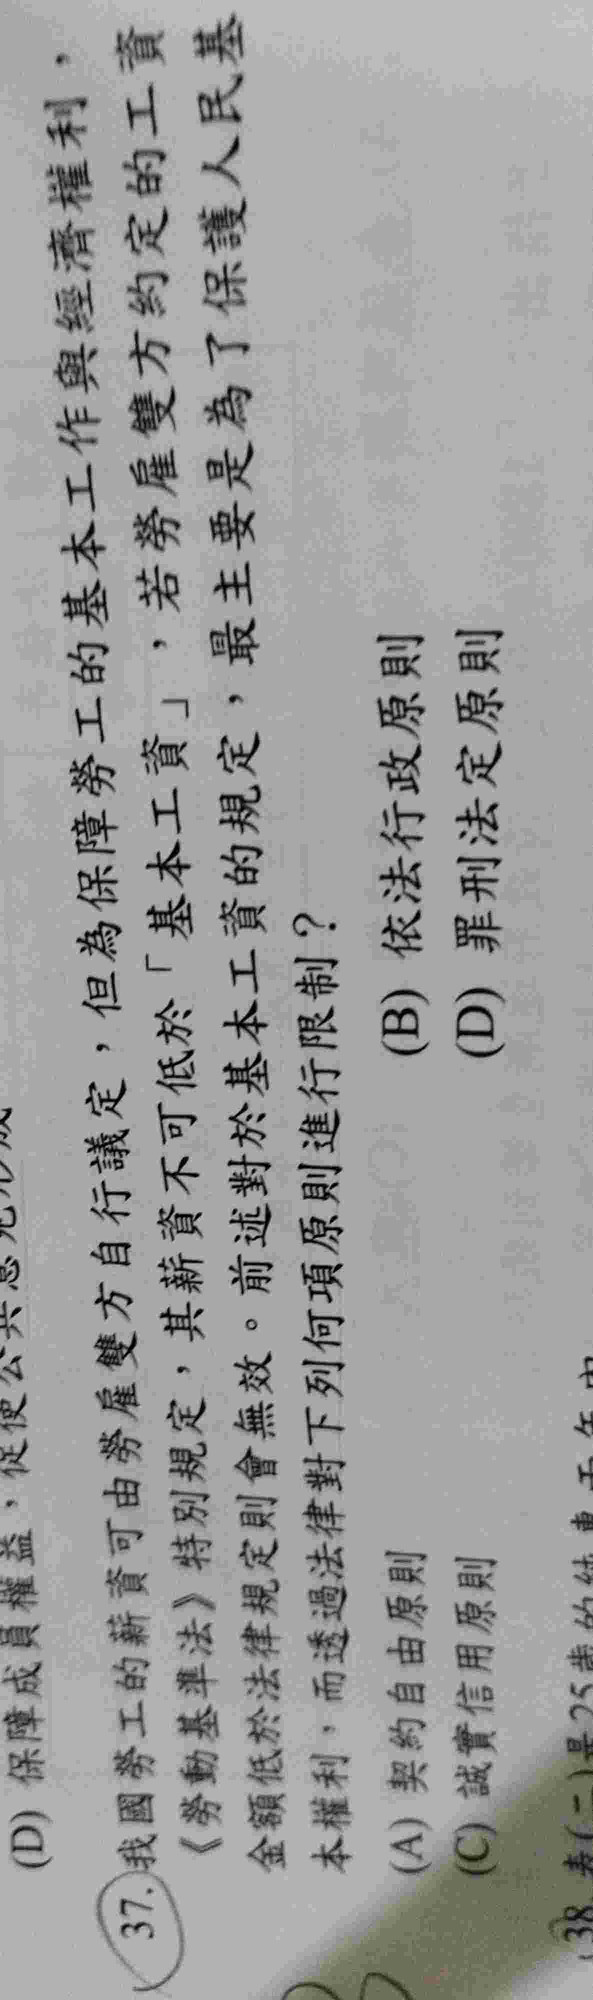 (D) 保障成員權益,促使公共意見形成
37. 我國勞工的薪資可由勞雇雙方自行議定,但為保障勞工的基本工作與經濟權利,
《勞動基準法》特別規定,其薪資不可低於「基本工資」,若勞雇雙方約定的工資
金額低於法律規定則會無效。前述對於基本工資的規定,最主要是為了保護人民基
本權利,而透過法律對下列何項原則進行限制?
(A) 契約自由原則 (B) 依法行政原則
(C) 誠實信用原則 (D) 罪刑法定原則
38. 表(二)是25歲的